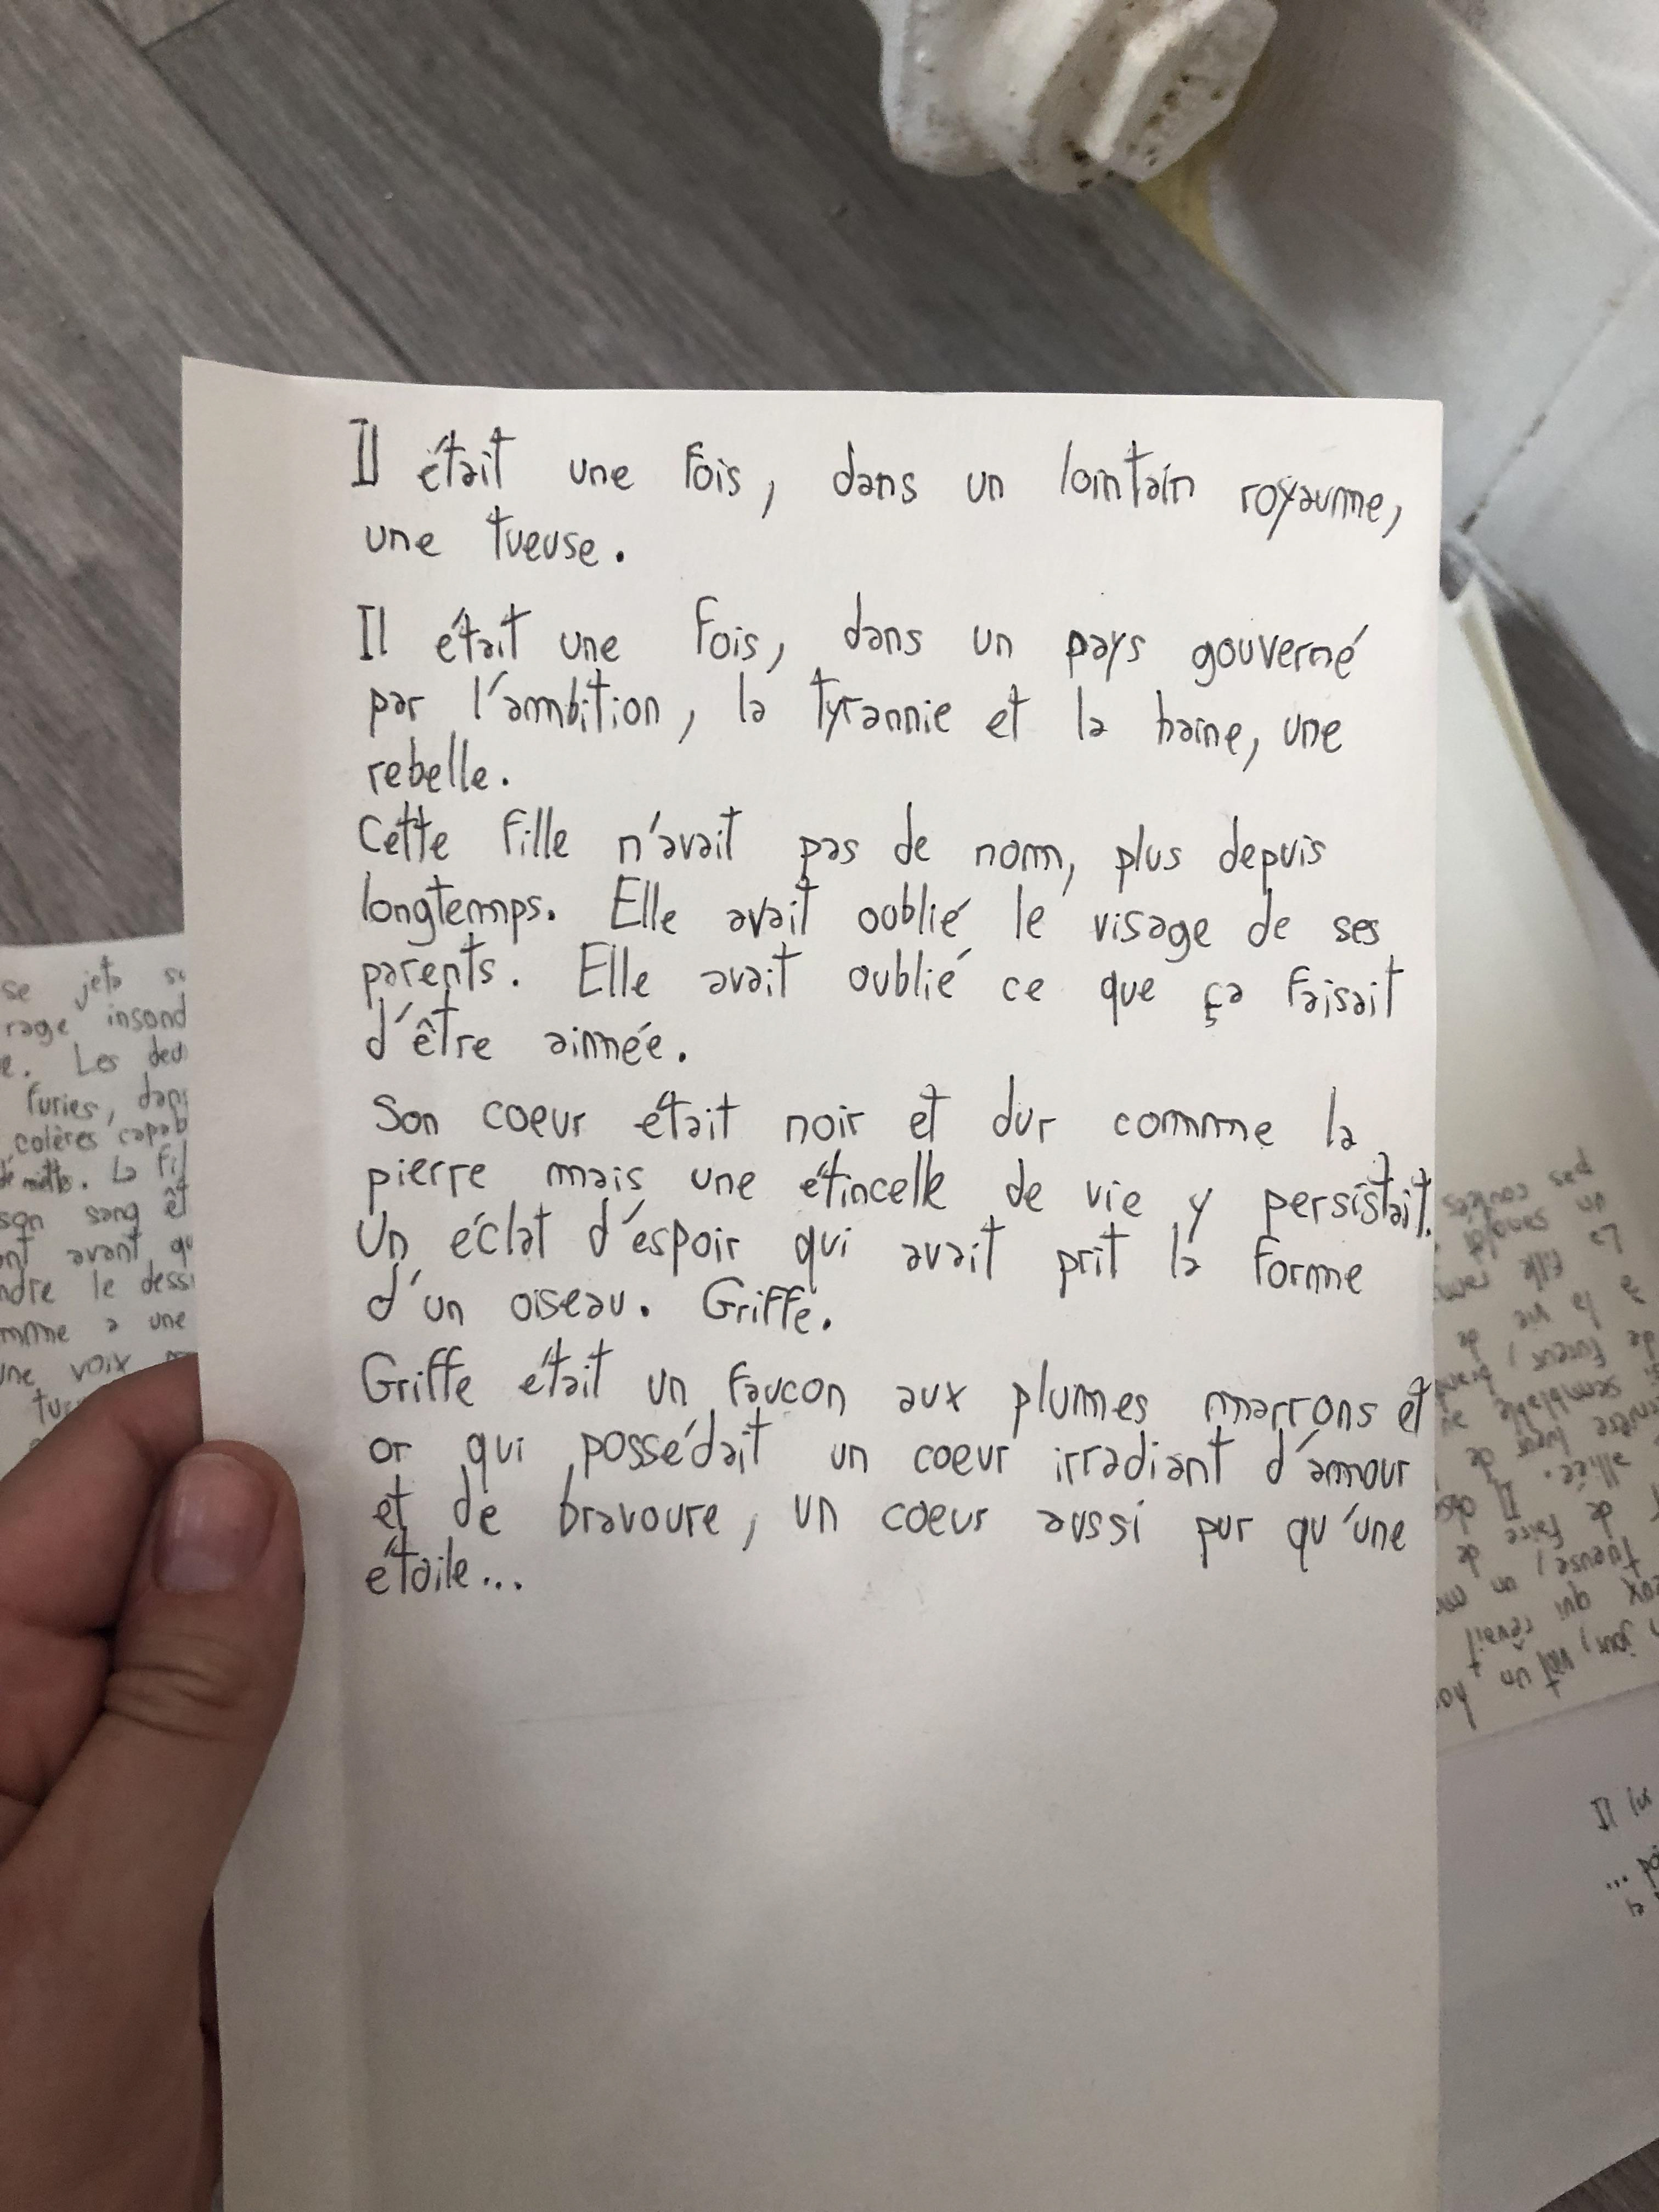 Il était une fois, dans un lointain royaume,
une tueuse.
Il était une fois, dans un pays gouverné
par l'ambition, la tyrannie et la haine, une
rebelle.
Cette fille n'avait pas de nom, plus depuis
longtemps. Elle avait oublié le visage de ses
parents. Elle avait oublié ce que ça faisait
d'être aimée.
Son coeur était noir et dur comme la
pierre mais une étincelle de vie y persistait.
Un éclat d'éspoir qui avait prit la forme
d'un oiseau. Griffe.
Griffe était un faucon aux plumes marrons et
or qui possédait un coeur irradiant d'amour
et de bravoure, un coeur aussi pur qu'une
étoile...
se jeta
rage insond
e. Les deu
furies, dans
colères capab
La fil
son sang êt
avant qu
ndre le dess
mme a une
une voix
pas
un
La fille
à la vie de
de fureur,
semblable
de
alliée. Il
de faire de
tueuse, un
qui rêvait
jour, vot un
Il lu